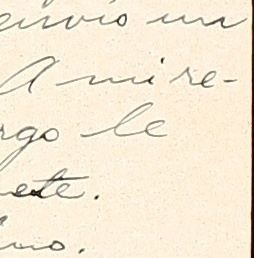 envío un
A mi re-
rgo le
ete.
imo.